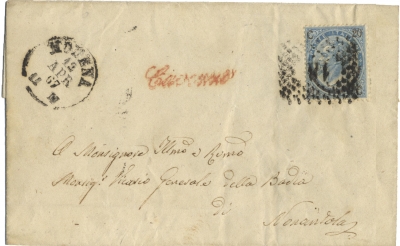 MODENA
13
APR
67
A Monsignore Illmo e Revmo
Monsigr Vicario Generale della Badia
di
Nonantola